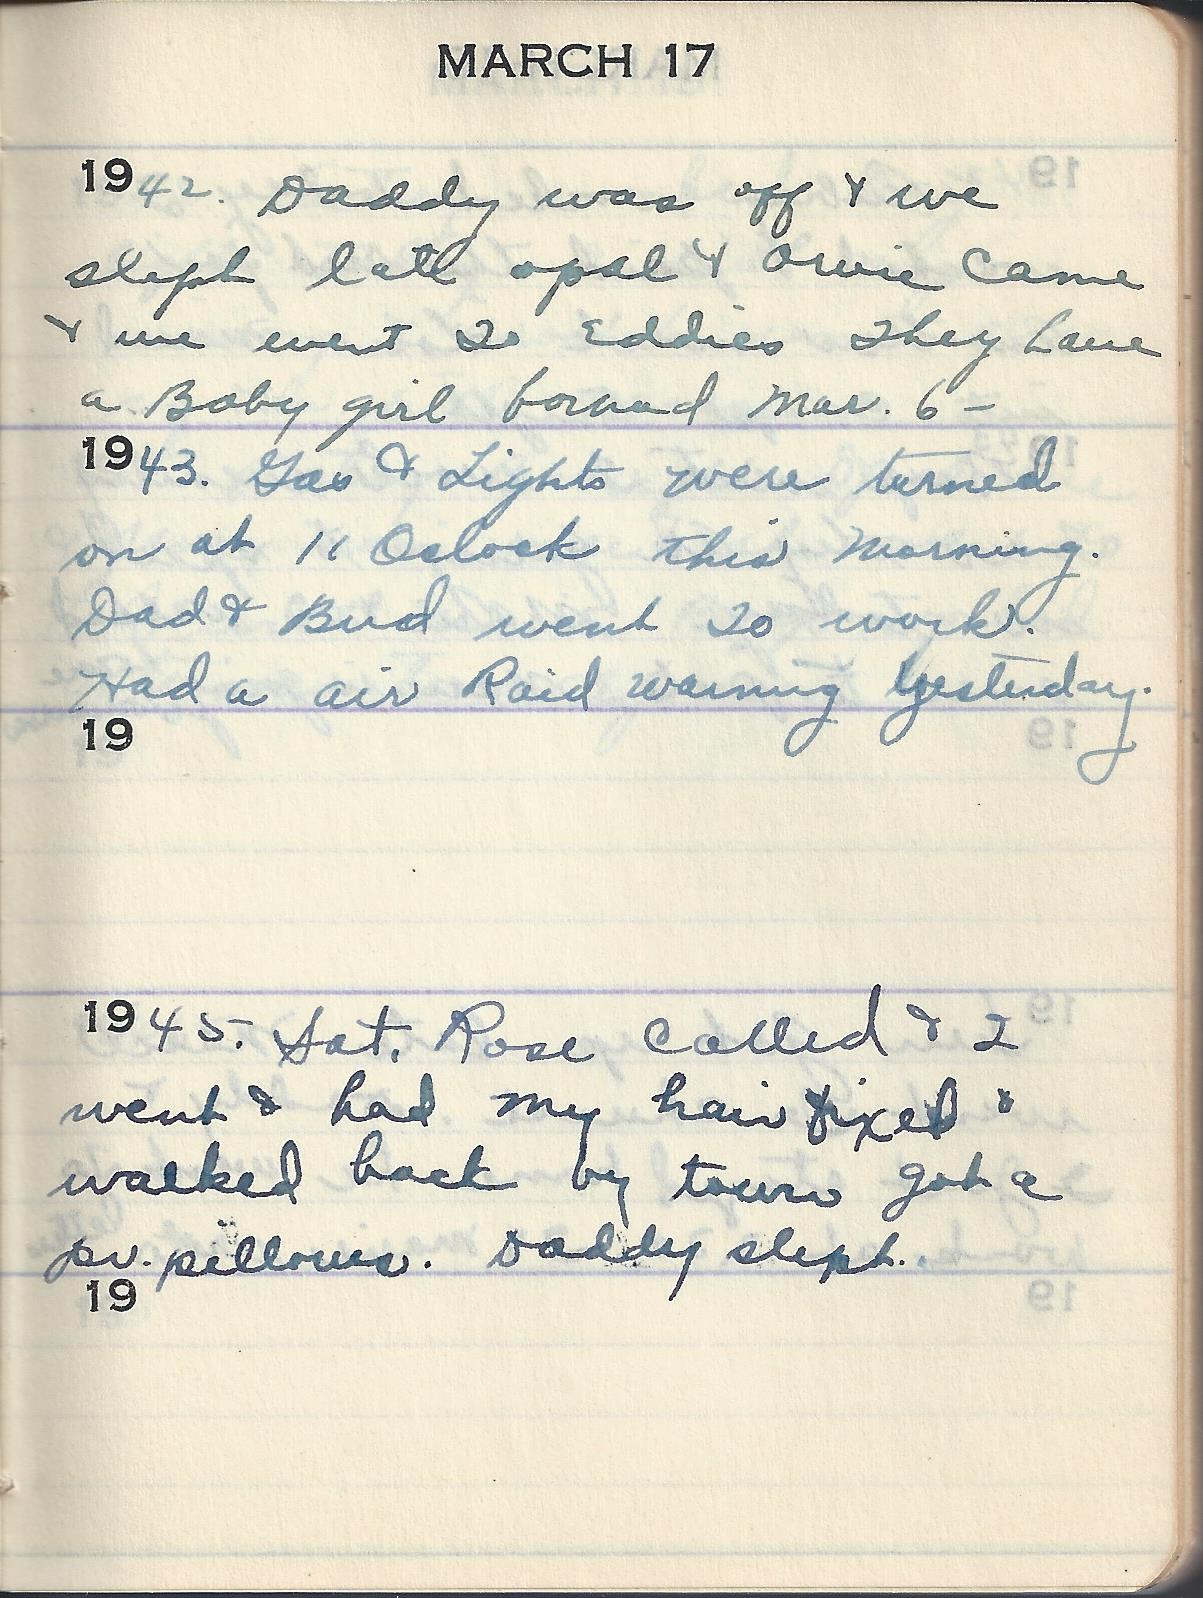 MARCH 17
1942. Daddy was off & we
sleph late opal & Orvie Came
& we went To Eddies They have
a Baby girl bornd Mar. 6 -
1943. Gas & Lights were turned
on at 11 Oclock this Morning.
Dad & Bud went To work.
Had a air Raid warning yesterday.
19
1945. Sat. Rose Called & I
went & had my hair fixed &
walked back by town got a
pr. pillows. Daddy sleph.
19